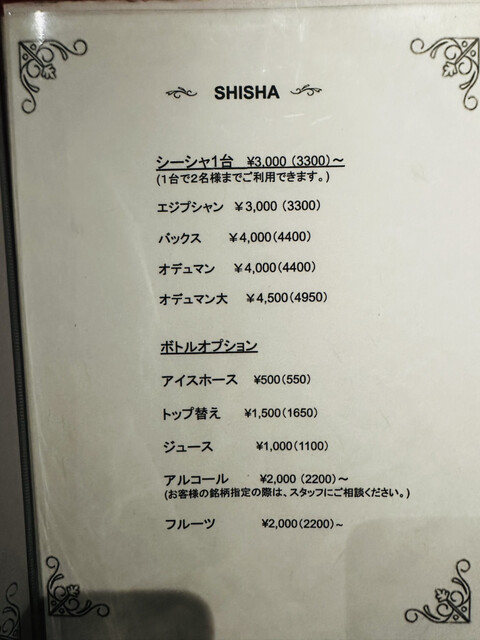 SHISHA
シーシャ1台 ¥3,000 (3300)~
(1台で2名様までご利用できます。)
エジプシャン ¥3,000 (3300)
バックス ¥4,000(4400)
オデュマン ¥4,000(4400)
オデュマン大 ¥4,500(4950)
ボトルオプション
アイスホース ¥500(550)
トップ替え ¥1,500(1650)
ジュース ¥1,000(1100)
アルコール ¥2,000 (2200)~
(お客様の銘柄指定の際は、スタッフにご相談ください。)
フルーツ ¥2,000(2200)~